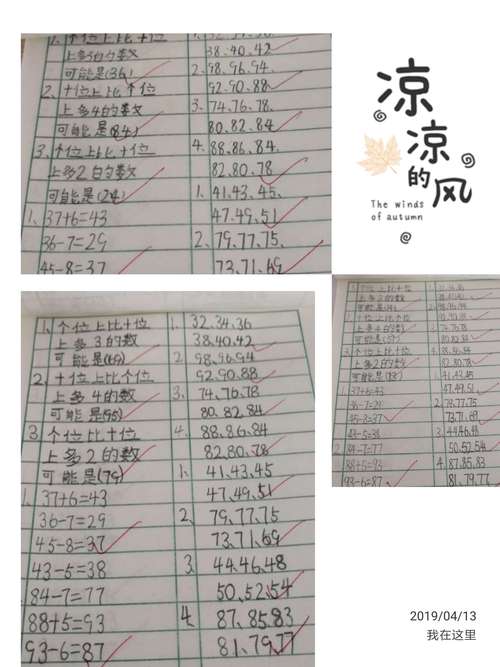 1. 个位上比十位
上多3的数
可能是(36)
2. 十位上比个位
上多4的数
可能是(84)
3. 个位上比十位
上多2的数
可能是(24)
1. 37+6=43
36-7=29
45-8=37
32.34.36
38.40.42
2. 98.96.94.
92.90.88
3. 74.76.78
80.82.84
4. 88.86.84.
82.80.78
1. 41.43.45.
47.49.51
2. 79.77.75.
73.71.69
凉凉的风
The winds
of autumn
1. 个位上比十位
上多3的数
可能是(69)
2. 十位上比个位
上多4的数
可能是(95)
3. 个位比十位
上多2的数
可能是(79)
1. 37+6=43
36-7=29
45-8=37
43-5=38
84-7=77
88+5=93
93-6=87
1. 32.34.36
38.40.42
2. 98.96.94
92.90.88
3. 74.76.78
80.82.84
4. 88.86.84
82.80.78
1. 41.43.45
47.49.51
2. 79.77.75
73.71.69
3. 44.46.48
50.52.54
4. 87.85.83
81.79.77
个位上比十位
上多3的数
十位上比个位
上多4的数
3. 个位上比十位
上多2的数
1. 37+6=43
36-7=29
45-8=37
43-5=38
84-7=77
88+5=93
93-6=87
32.34.36
38.40.42
98.96.94
92.90.88
74.76.78
80.82.84
88.86.84
82.80.78
41.43.45
47.49.51
2. 79.77.75
73.71.69
3. 44.46.48
50.52.54
4. 87.85.83
81.79.77
2019/04/13
我在这里